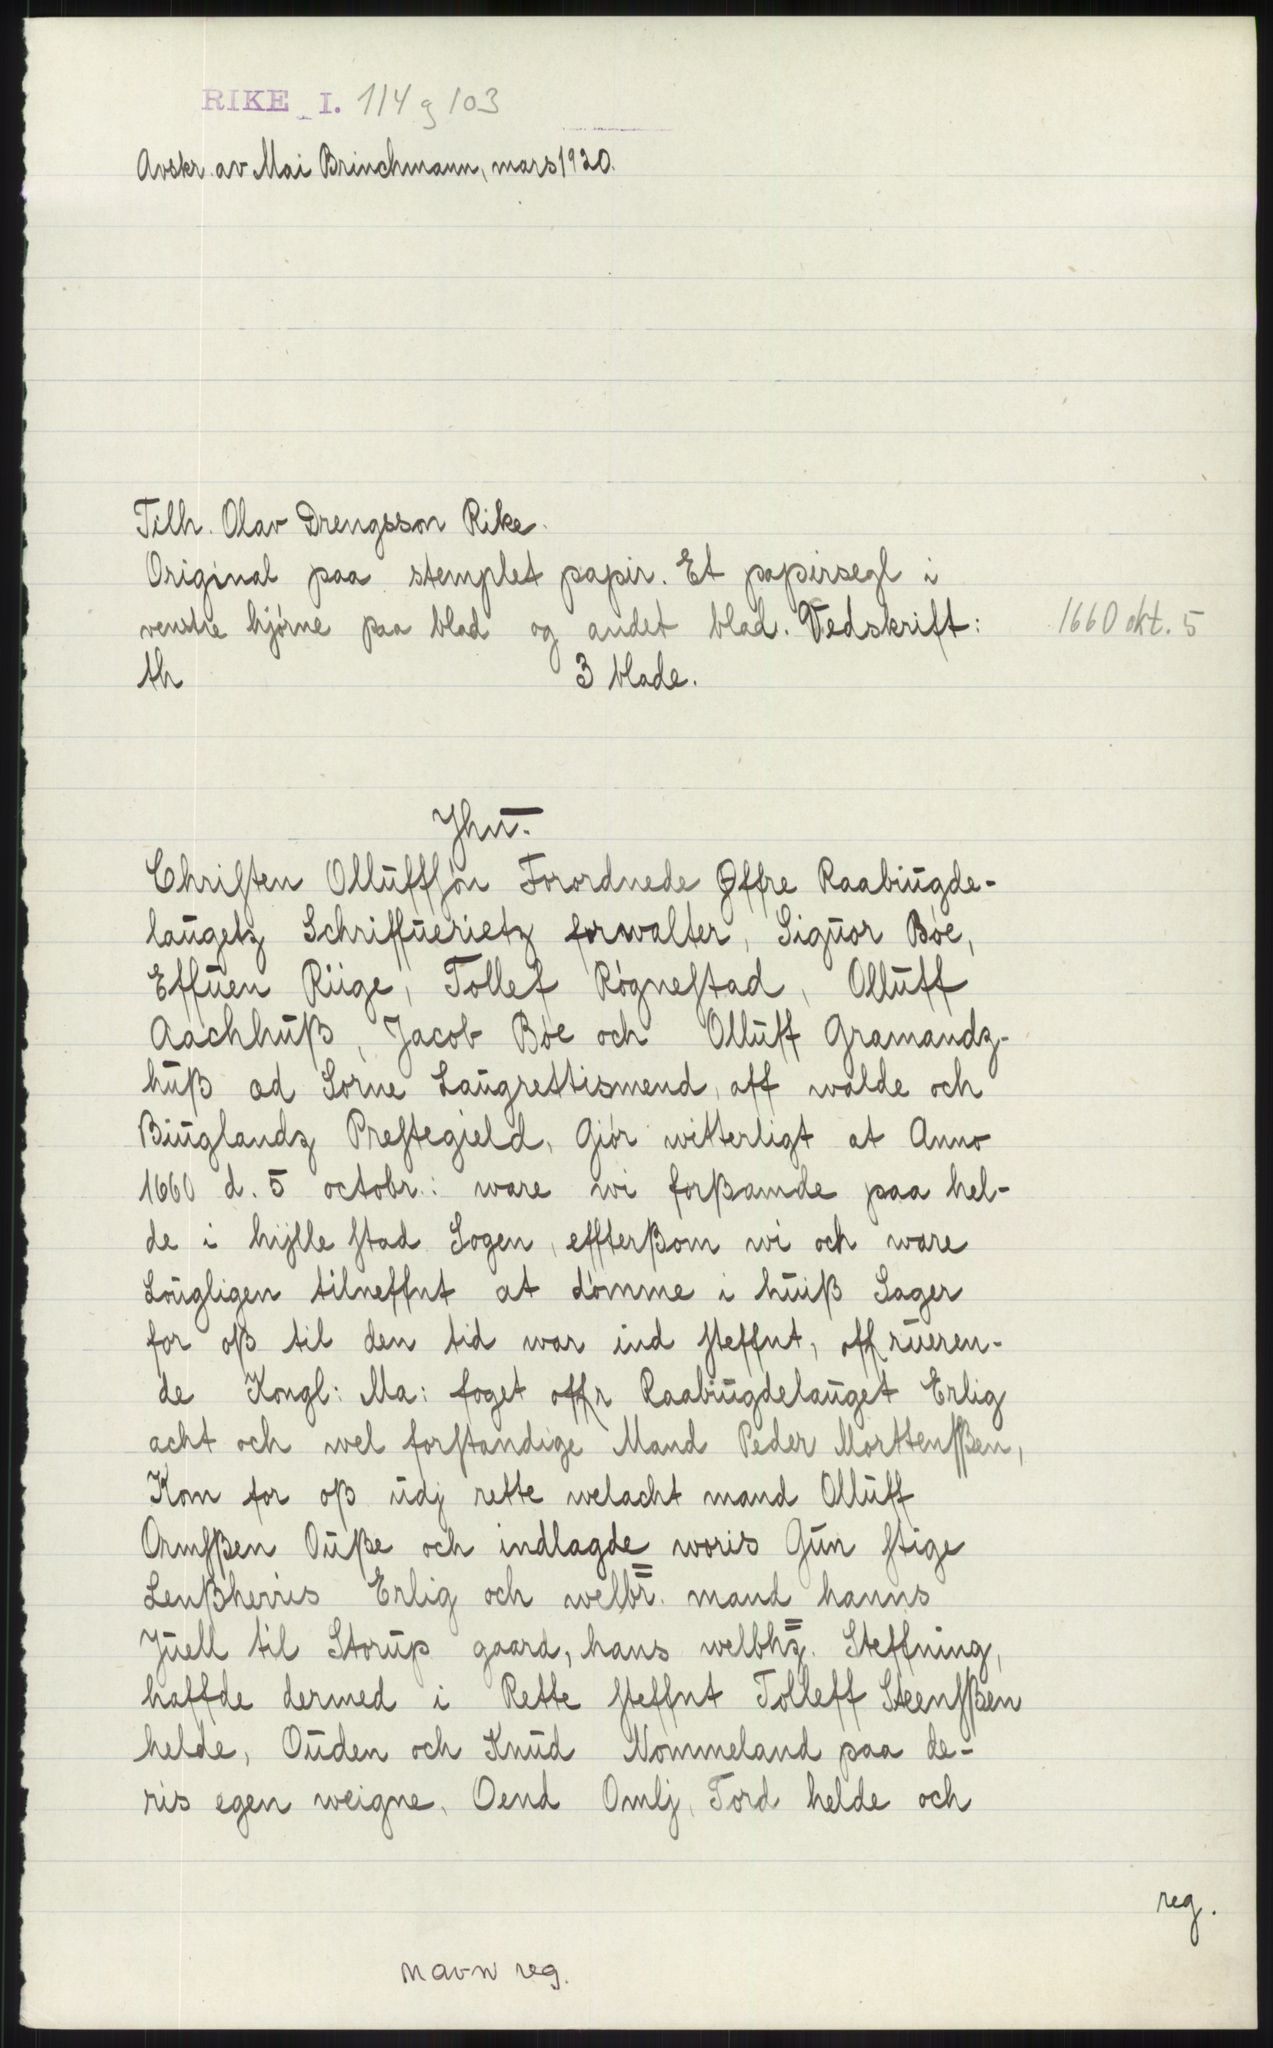 RIKE I. 114 g 103
Avskr. av Mai Brinchmann, mars 1920.
Tilh. Olav Drengsson Rike.
Original paa stemplet papir. Et papirsegl i
venstre hjørne paa blad og andet blad. Vedskrift:
1660 okt. 5
th 3 blade.
Jhu̅.
Christen Olluffsøn Forordnede Øffre Raabiugde-
laugetz Schriffuerietz forwalter, Siguor Bøe,
Effuen Riige, Tollef Røgnestad, Olluff
Aachhuß, Jacob Bøe och Olluff Gramandz-
huß æd Sorne Laugrettismend, aff walde och
Biuglandz Prestegield, Giør witterligt at Anno
1660 d. 5 octobr.: ware wi forßamde paa hel-
de i hylle stad Sogen, effterßom wi och ware
Lougligen tilneffnt at dømme i huiß Sager
for oß til den tid war ind steffnt, offrueren-
de Kongl: Ma: foget offr Raabiugdelauget Erlig
acht och wel forstandige Mand Peder Morttensßen,
Kom for oß udj rette welacht mand Olluff
Ormsßen Oußе och indlagde woris Gun stige
Lenßherris Erlig och welbr̿. mand hanns
Juell til Storup gaard, hans welbhz̿. Steffning,
haffde dermed i Rette steffnt Tolleff Steensßen
helde, Ouden och Knud Nommeland paa de-
ris egen weigne, Oend Omlj, Tord helde och
reg.
navn reg.